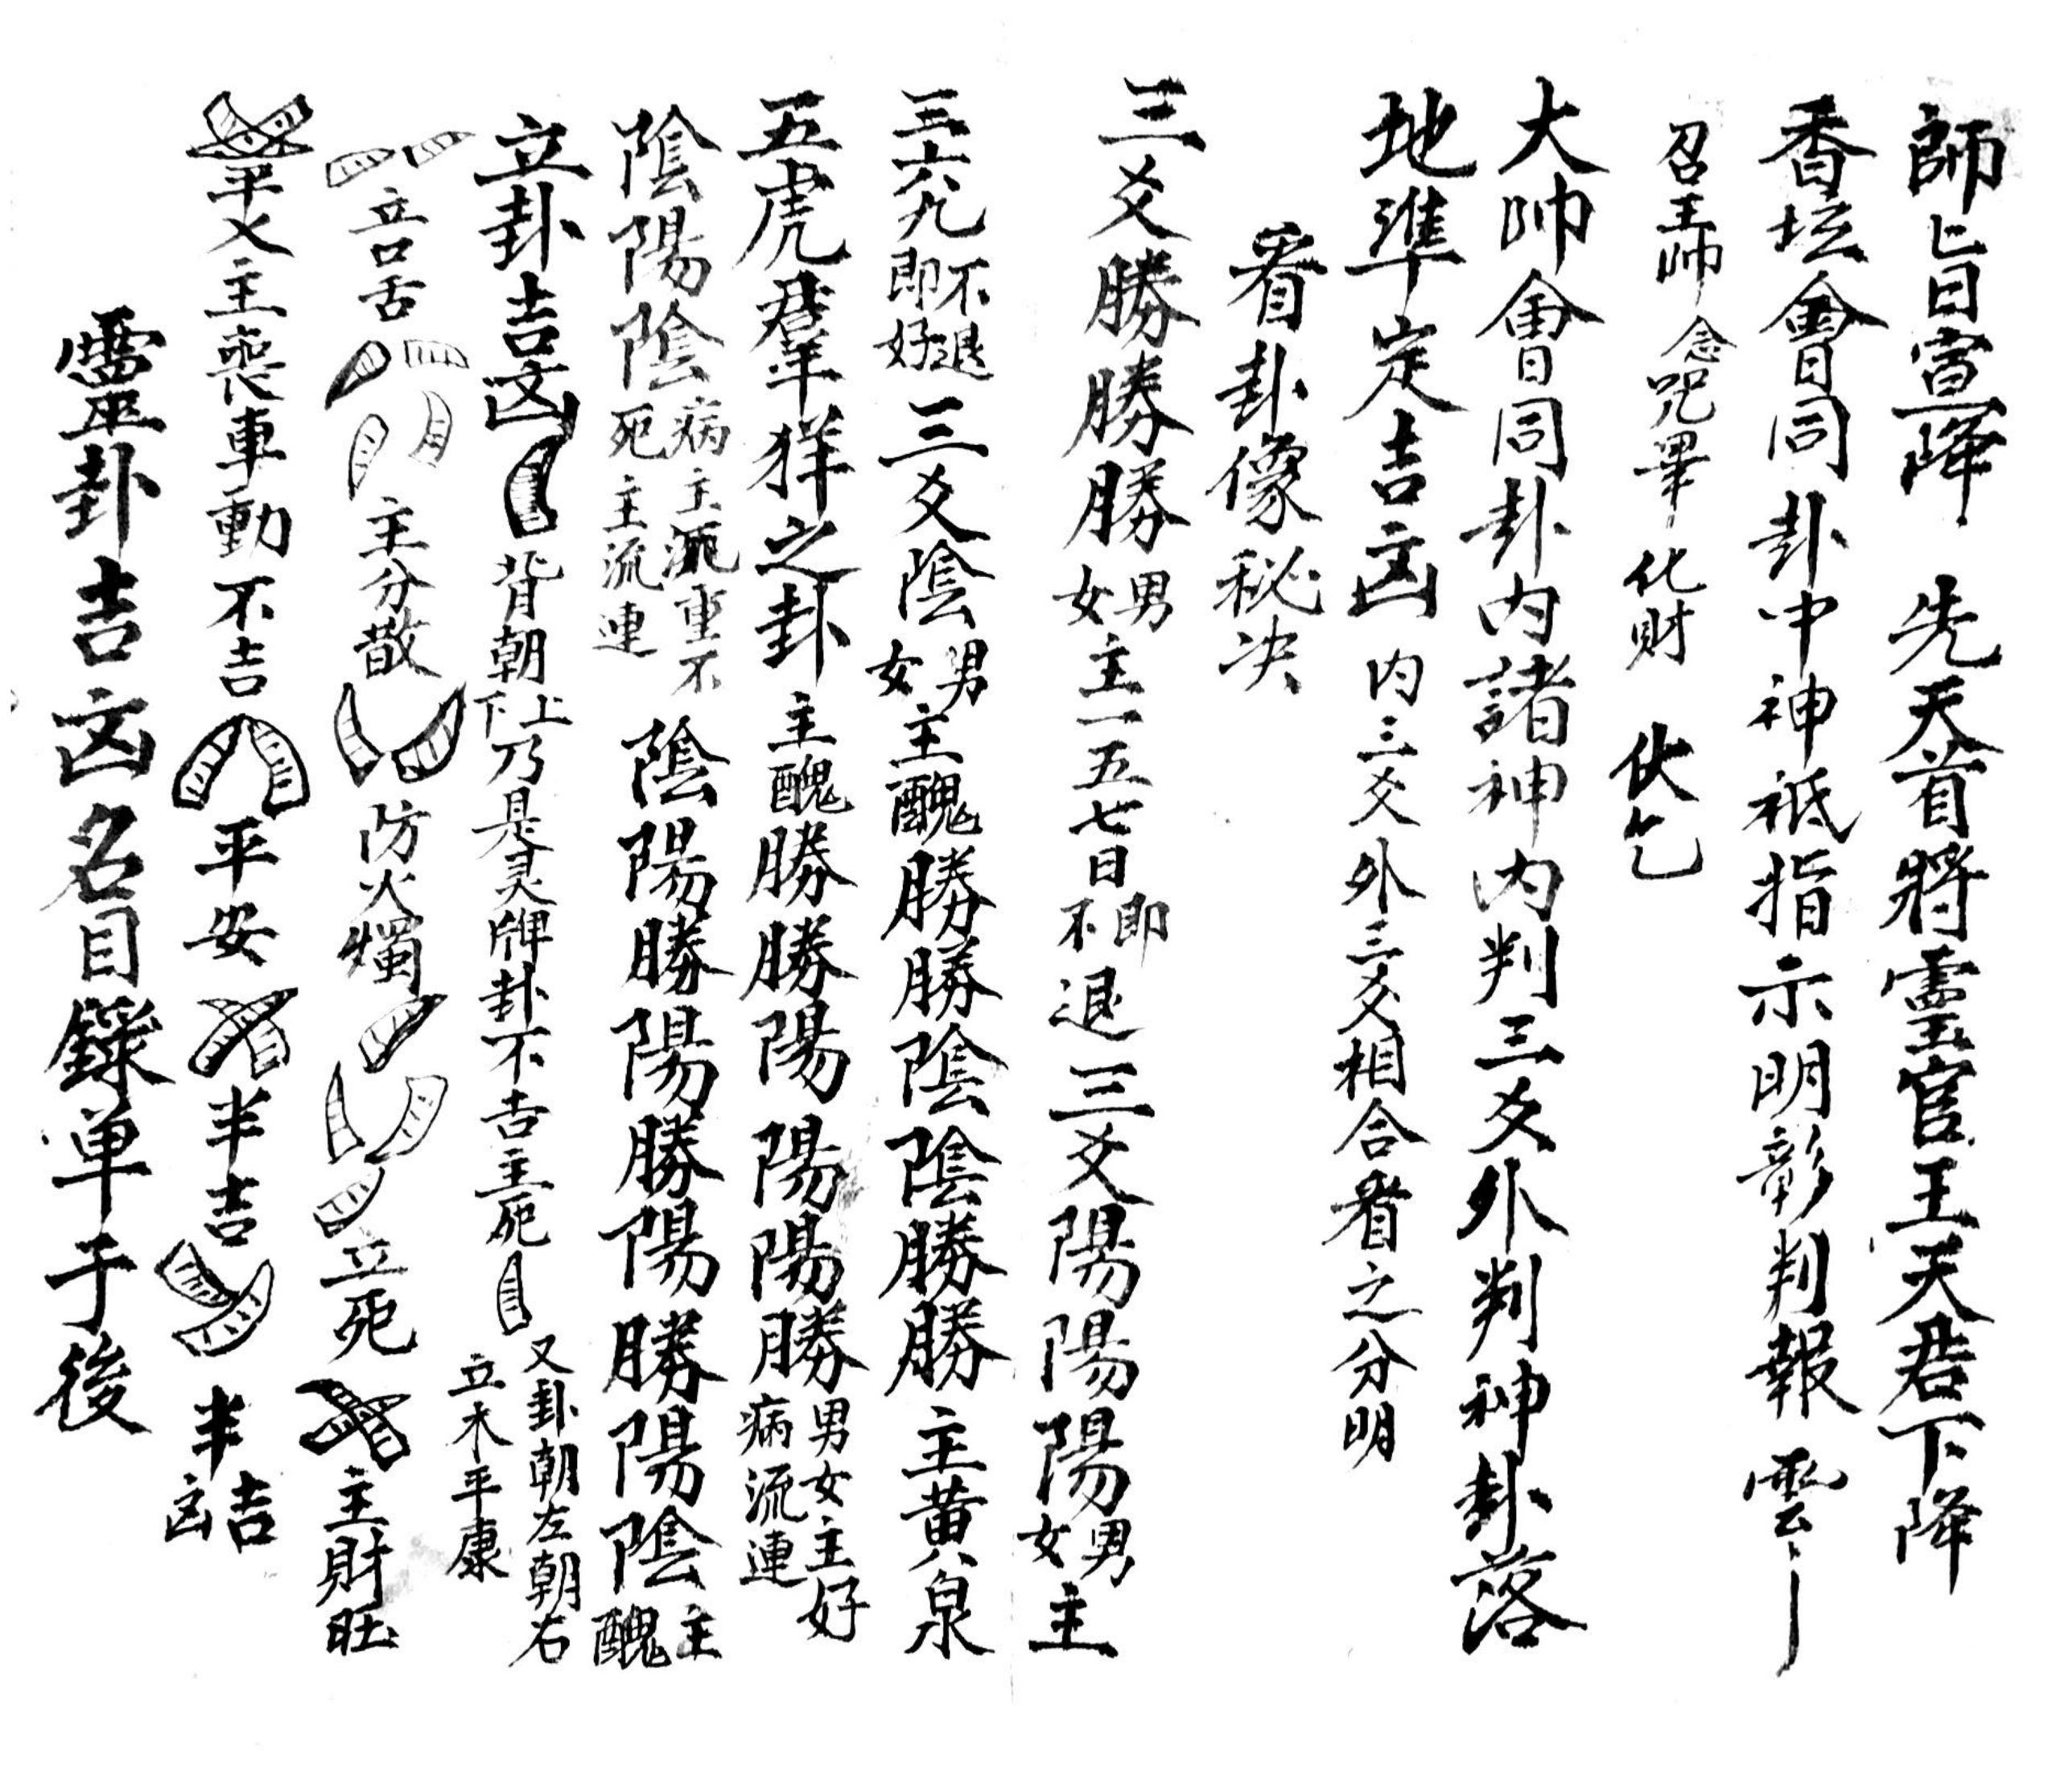 師旨宣降 先天首將靈官王天君下降
香坛會同卦中神祗指示明彰判報雲〻
召王帅 念咒畢 化財 伏乞
大帅會同卦内諸神内判三爻外判神卦落
地準定吉凶 内三爻外三爻相合看之分明
看卦像秘决
三爻勝勝勝男女主一五七日即不退三爻陽陽陽男女主
三六九不退即好三爻陰男女主醜勝勝陰陰勝勝主黄泉
五虎羣羊之卦主醜勝勝陽陽陽勝男女主好病流連
陰陽陰病主重不死主流連陰陽勝陽勝陽勝陽陰主醜
立卦吉凶背朝上下乃是灵牌卦不吉主死又卦朝左朝右立木平康
立口舌主分散防火燭立死主財旺
平乂主喪車動不吉平安半吉半吉凶
靈卦吉凶名目錄单于後